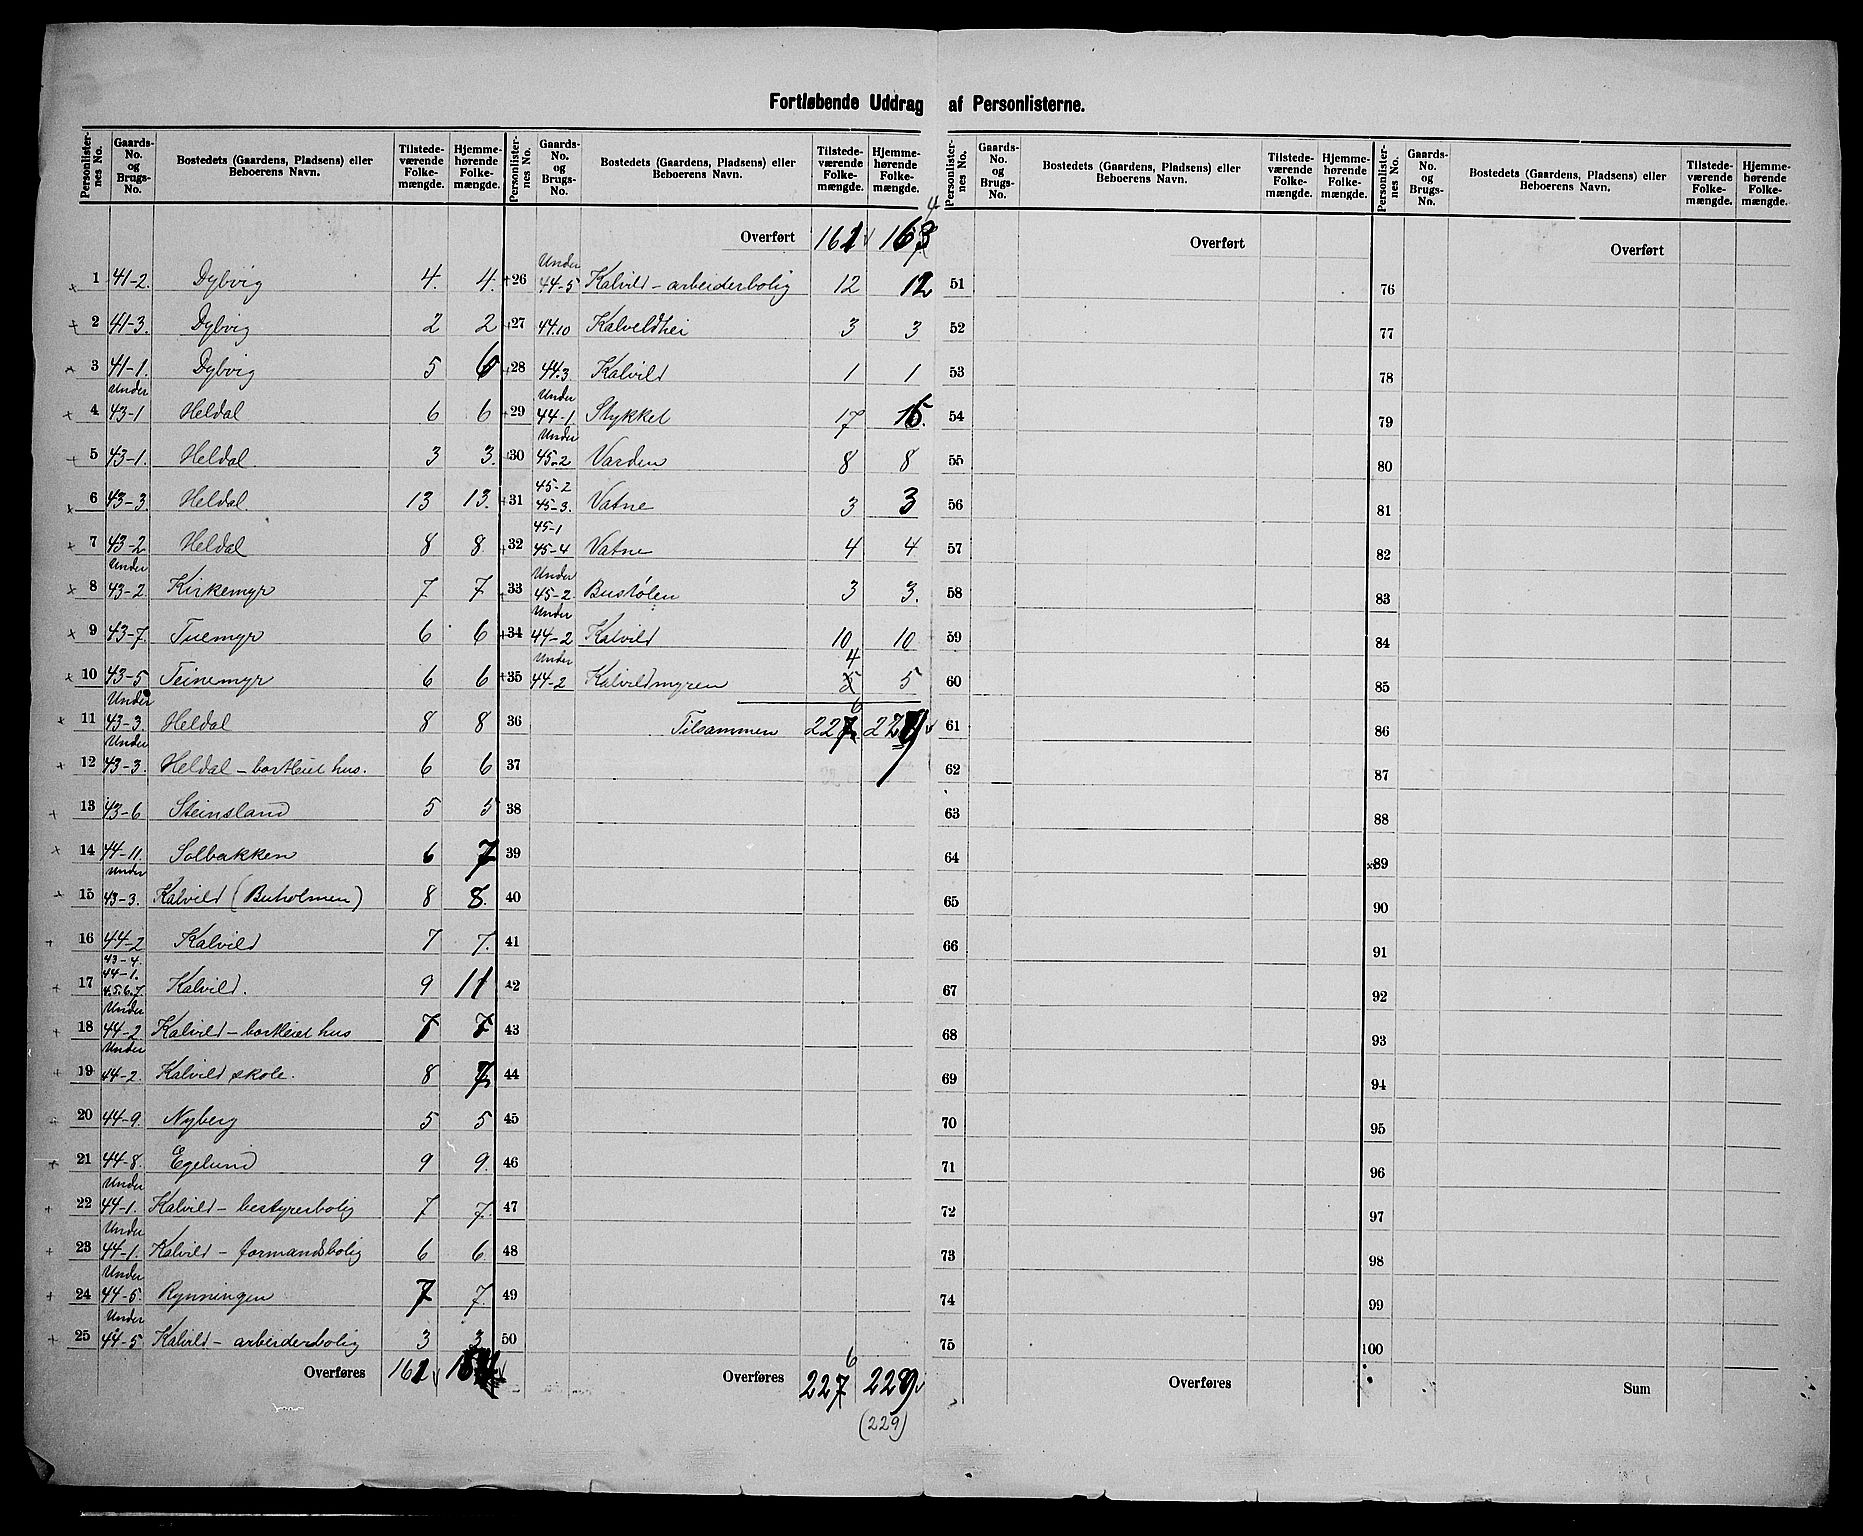 Fortløbende Uddrag af Personlisterne.
Personlisternes No. | Gaards-No. og Brugs-No. | Bostedets (Gaardens, Pladsens) eller Beboerens Navn. | Tilstedeværende Folkemængde. | Hjemmehørende Folkemængde.
1 41-2. Dybvig 4. 4.
2 41-3. Dybvig 2 2
3 41-1. Dybvig 5 6
4 Under 43-1 Heldal 6 6
5 43-1. Heldal 3 3.
6 43-3. Heldal 13 13.
7 43-2 Heldal 8 8
8 Under 43-2. Kirkemyr 7 7
9 43-7. Tuemyr 6 6
10 43-5 Teinemyr 6 6
11 Under 43-3. Heldal 8 8
12 Under 43-3. Heldal - bortleiet hus. 6 6
13 43-6 Steinsland 5 5
14 44-11. Solbakken 6 7
15 Under 43-3. Kalvild (Buholmen) 8 8.
16 44-2 Kalvild 7 7.
17 43-4. 44-1. 4.5.6.7. Kalvild. 9 11
18 Under 44-2 Kalvild - bortleiet hus 7 7
19 Under 44-2. Kalvild skole. 8 7
20 44-9. Nyberg 5 5
21 44-8. Egelund 9 9.
22 Under 44-1. Kalvild - bestyrerbolig 7 7.
23 Under 44-1. Kalvild - formandsbolig 6 6
24 Under 44-5. Rynningen 7 7.
25 Under 44-5 Kalvild - arbeiderbolig 3 3
Overføres 161
Overført 161 163 4
26 Under 44-5 Kalvild - arbeiderbolig 12 12
27 44.10 Kalveldhei 3 3
28 44.3 Kalvild 1 1
29 Under 44-1. Stykket 17 15.
30 Under 45-2 Varden 8 8
31 45-2 45-3. Vatne 3 3
32 45-1 45-4 Vatne 4 4
33 Under 45-2 Bustølen 3 3.
34 Under 44-2 Kalvild 10 10
35 Under 44-2 Kalvildmyren 5 4 5
36 Tilsammen 227 6 229
37
38
39
40
41
42
43
44
45
46
47
48
49
50
Overføres 227 6 229
(229)
Personlisternes No. | Gaards-No. og Brugs-No. | Bostedets (Gaardens, Pladsens) eller Beboerens Navn. | Tilstedeværende Folkemængde. | Hjemmehørende Folkemængde.
Overført
51
52
53
54
55
56
57
58
59
60
61
62
63
64
65
66
67
68
69
70
71
72
73
74
75
Overføres
Overført
76
77
78
79
80
81
82
83
84
85
86
87
88
89
90
91
92
93
94
95
96
97
98
99
100
Sum